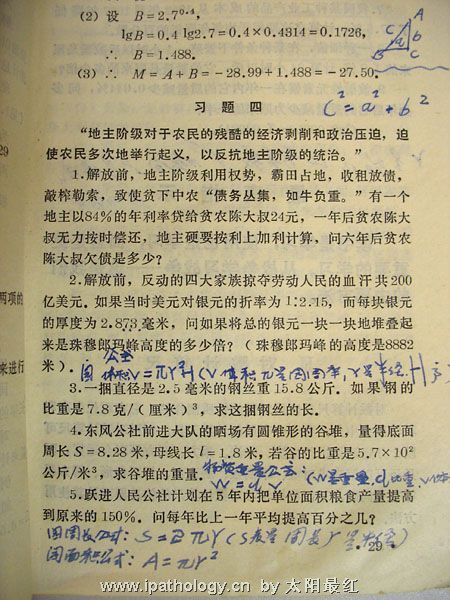 (2) 设 B=2.7^0.4,
lgB=0.4 lg2.7=0.4×0.4314=0.1726,
∴ B=1.488.
(3) ∴ M=A+B=-28.99+1.488=-27.50.
A
C
b
a
B
C
C²=a²+b²
习题四
“地主阶级对于农民的残酷的经济剥削和政治压迫，迫
使农民多次地举行起义，以反抗地主阶级的统治。”
1.解放前，地主阶级利用权势，霸田占地，收租放债，
敲榨勒索，致使贫下中农“债务丛集，如牛负重。”有一个
地主以84%的年利率贷给贫农陈大叔24元，一年后贫农陈大
叔无力按时偿还，地主硬要按利上加利计算，问六年后贫农
陈大叔欠债是多少？
2.解放前，反动的四大家族掠夺劳动人民的血汗共200
亿美元．如果当时美元对银元的折率为1:2.15，而每块银元
的厚度为2.873毫米，问如果将总的银元一块一块地堆叠起
来是珠穆郎玛峰高度的多少倍？（珠穆郎玛峰的高度是8882
米）．
公式
体积V=πr²H (V体积 π是圆周率, r是半径 H
3.一捆直径是2.5毫米的钢丝重15.8公斤．如果钢的
比重是7.8克/（厘米）³，求这捆钢丝的长．
4.东风公社前进大队的晒场有圆锥形的谷堆，量得底面
周长S=8.28米，母线长l=1.8米，若谷的比重是5.7×10²
公斤/米³，求谷堆的重量．
W=dV
(W是重量, d比重,
5.跃进人民公社计划在5年内把单位面积粮食产量提高
到原来的150%．问每年比上一年平均提高百分之几？
圆周长公式: S=2πr (S表示圆周长 r是半径)
圆面积公式: A=πr²
·29·
29
两项的
来进行
www.ipathology.cn by 太阳最红